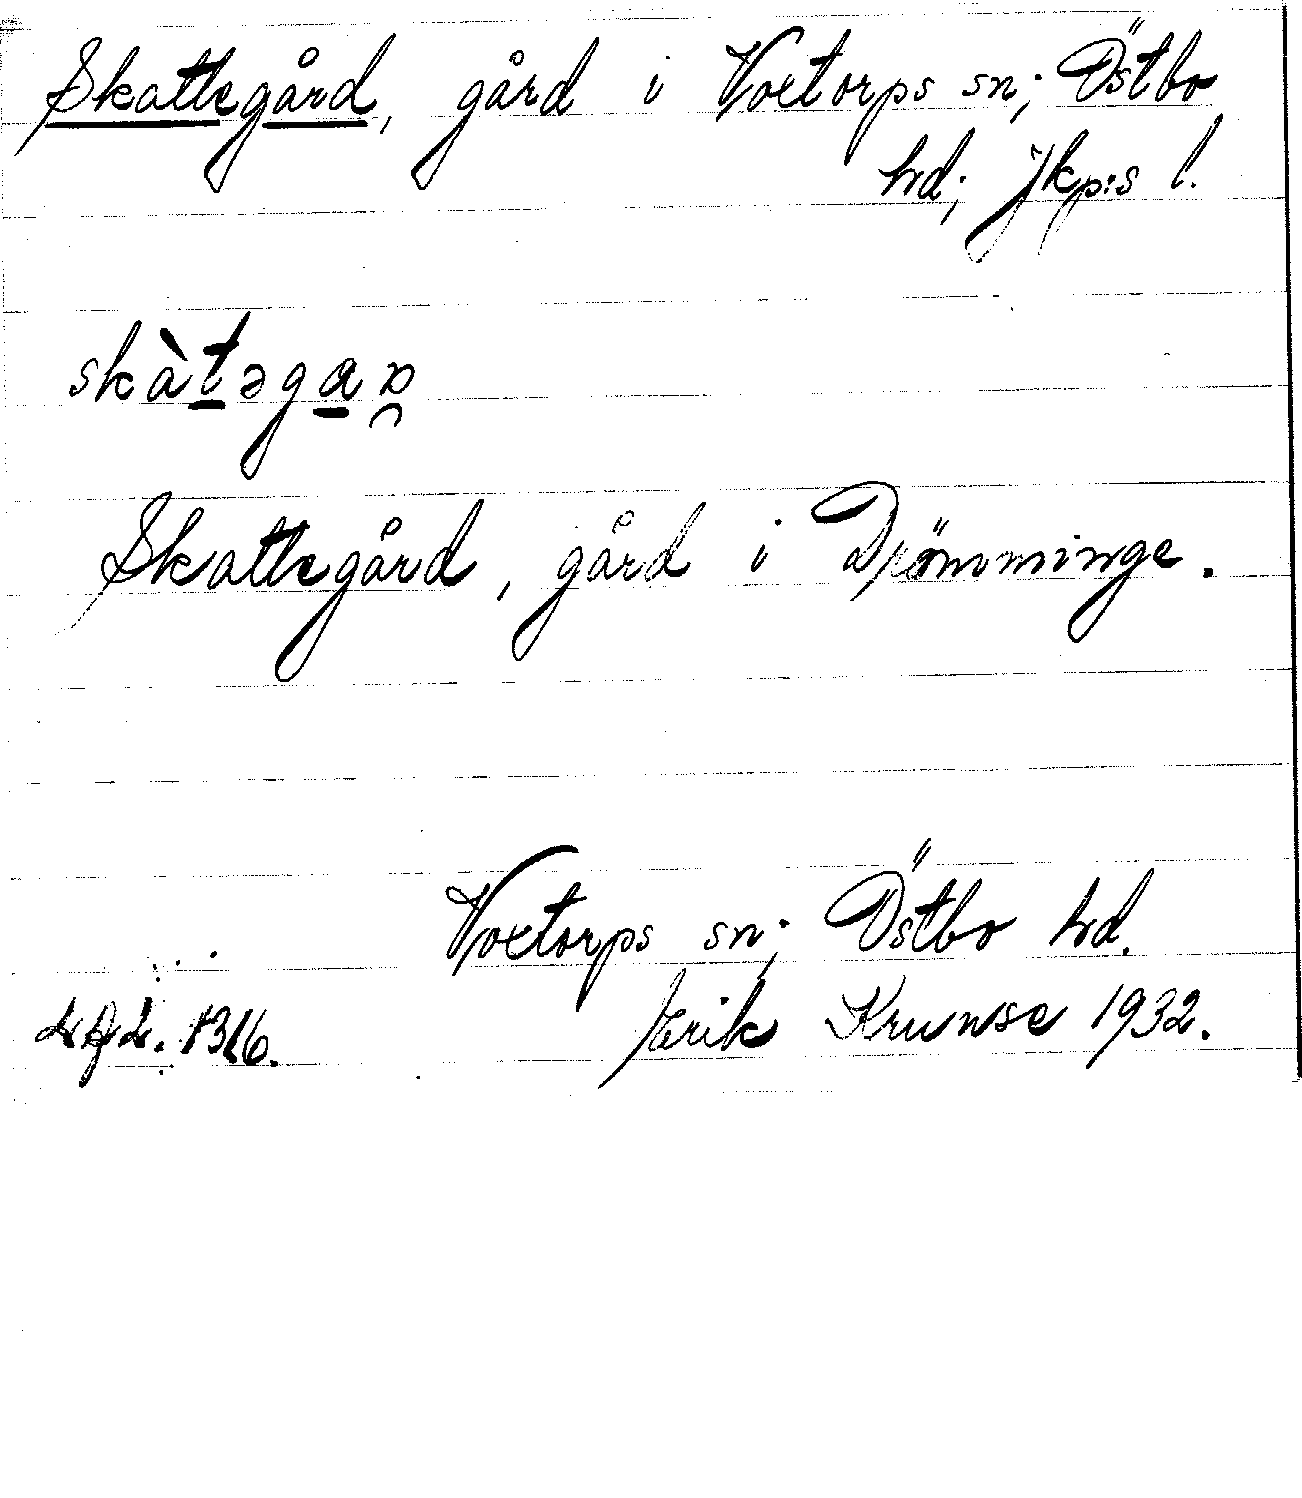 Skattegård, gård i Voxtorps sn; Östbo
hd; Jkp:s l.
skàtəgaɒ̯
Skattegård, gård i Drömminge.
Voxtorps sn; Östbo hd.
Erik Krunse 1932.
1316.